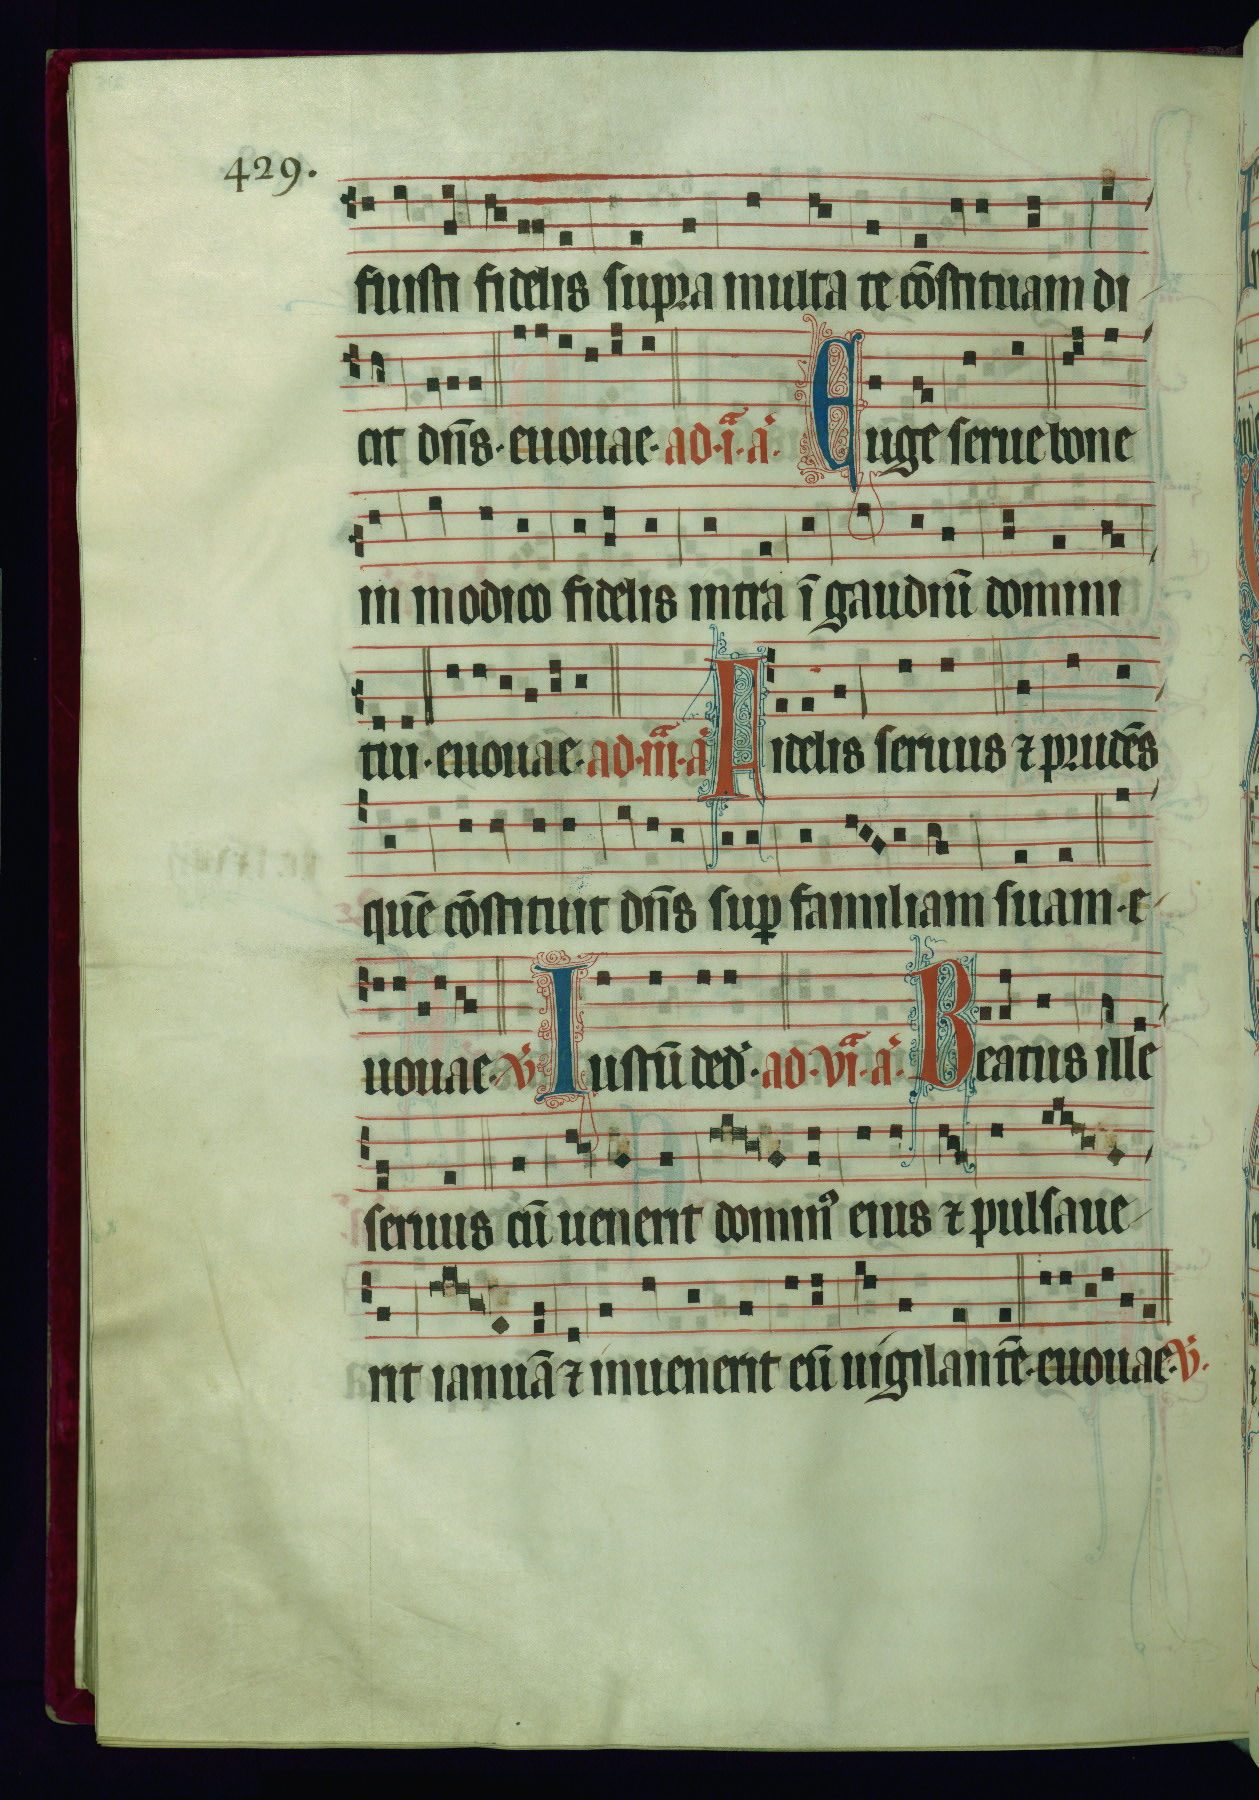 429.
fuisti fidelis supra multa te cōstituam di
cit dn̄s. euouae. ad .i.ā a. Euge serue bone
in modico fidelis intra ī gaudiū domini
tui. euouae. ad .iii.ā a Fidelis seruus ⁊ prudēs
quē cōstituit dn̄s sup̱ familiam suam. e
uouae. v Iustū ded'. ad .vi.ā a. Beatus ille
seruus cū uenerit domin⁹ eius ⁊ pulsaue
rit ianuā ⁊ inuenerit eū uigilantē. euouae. v.